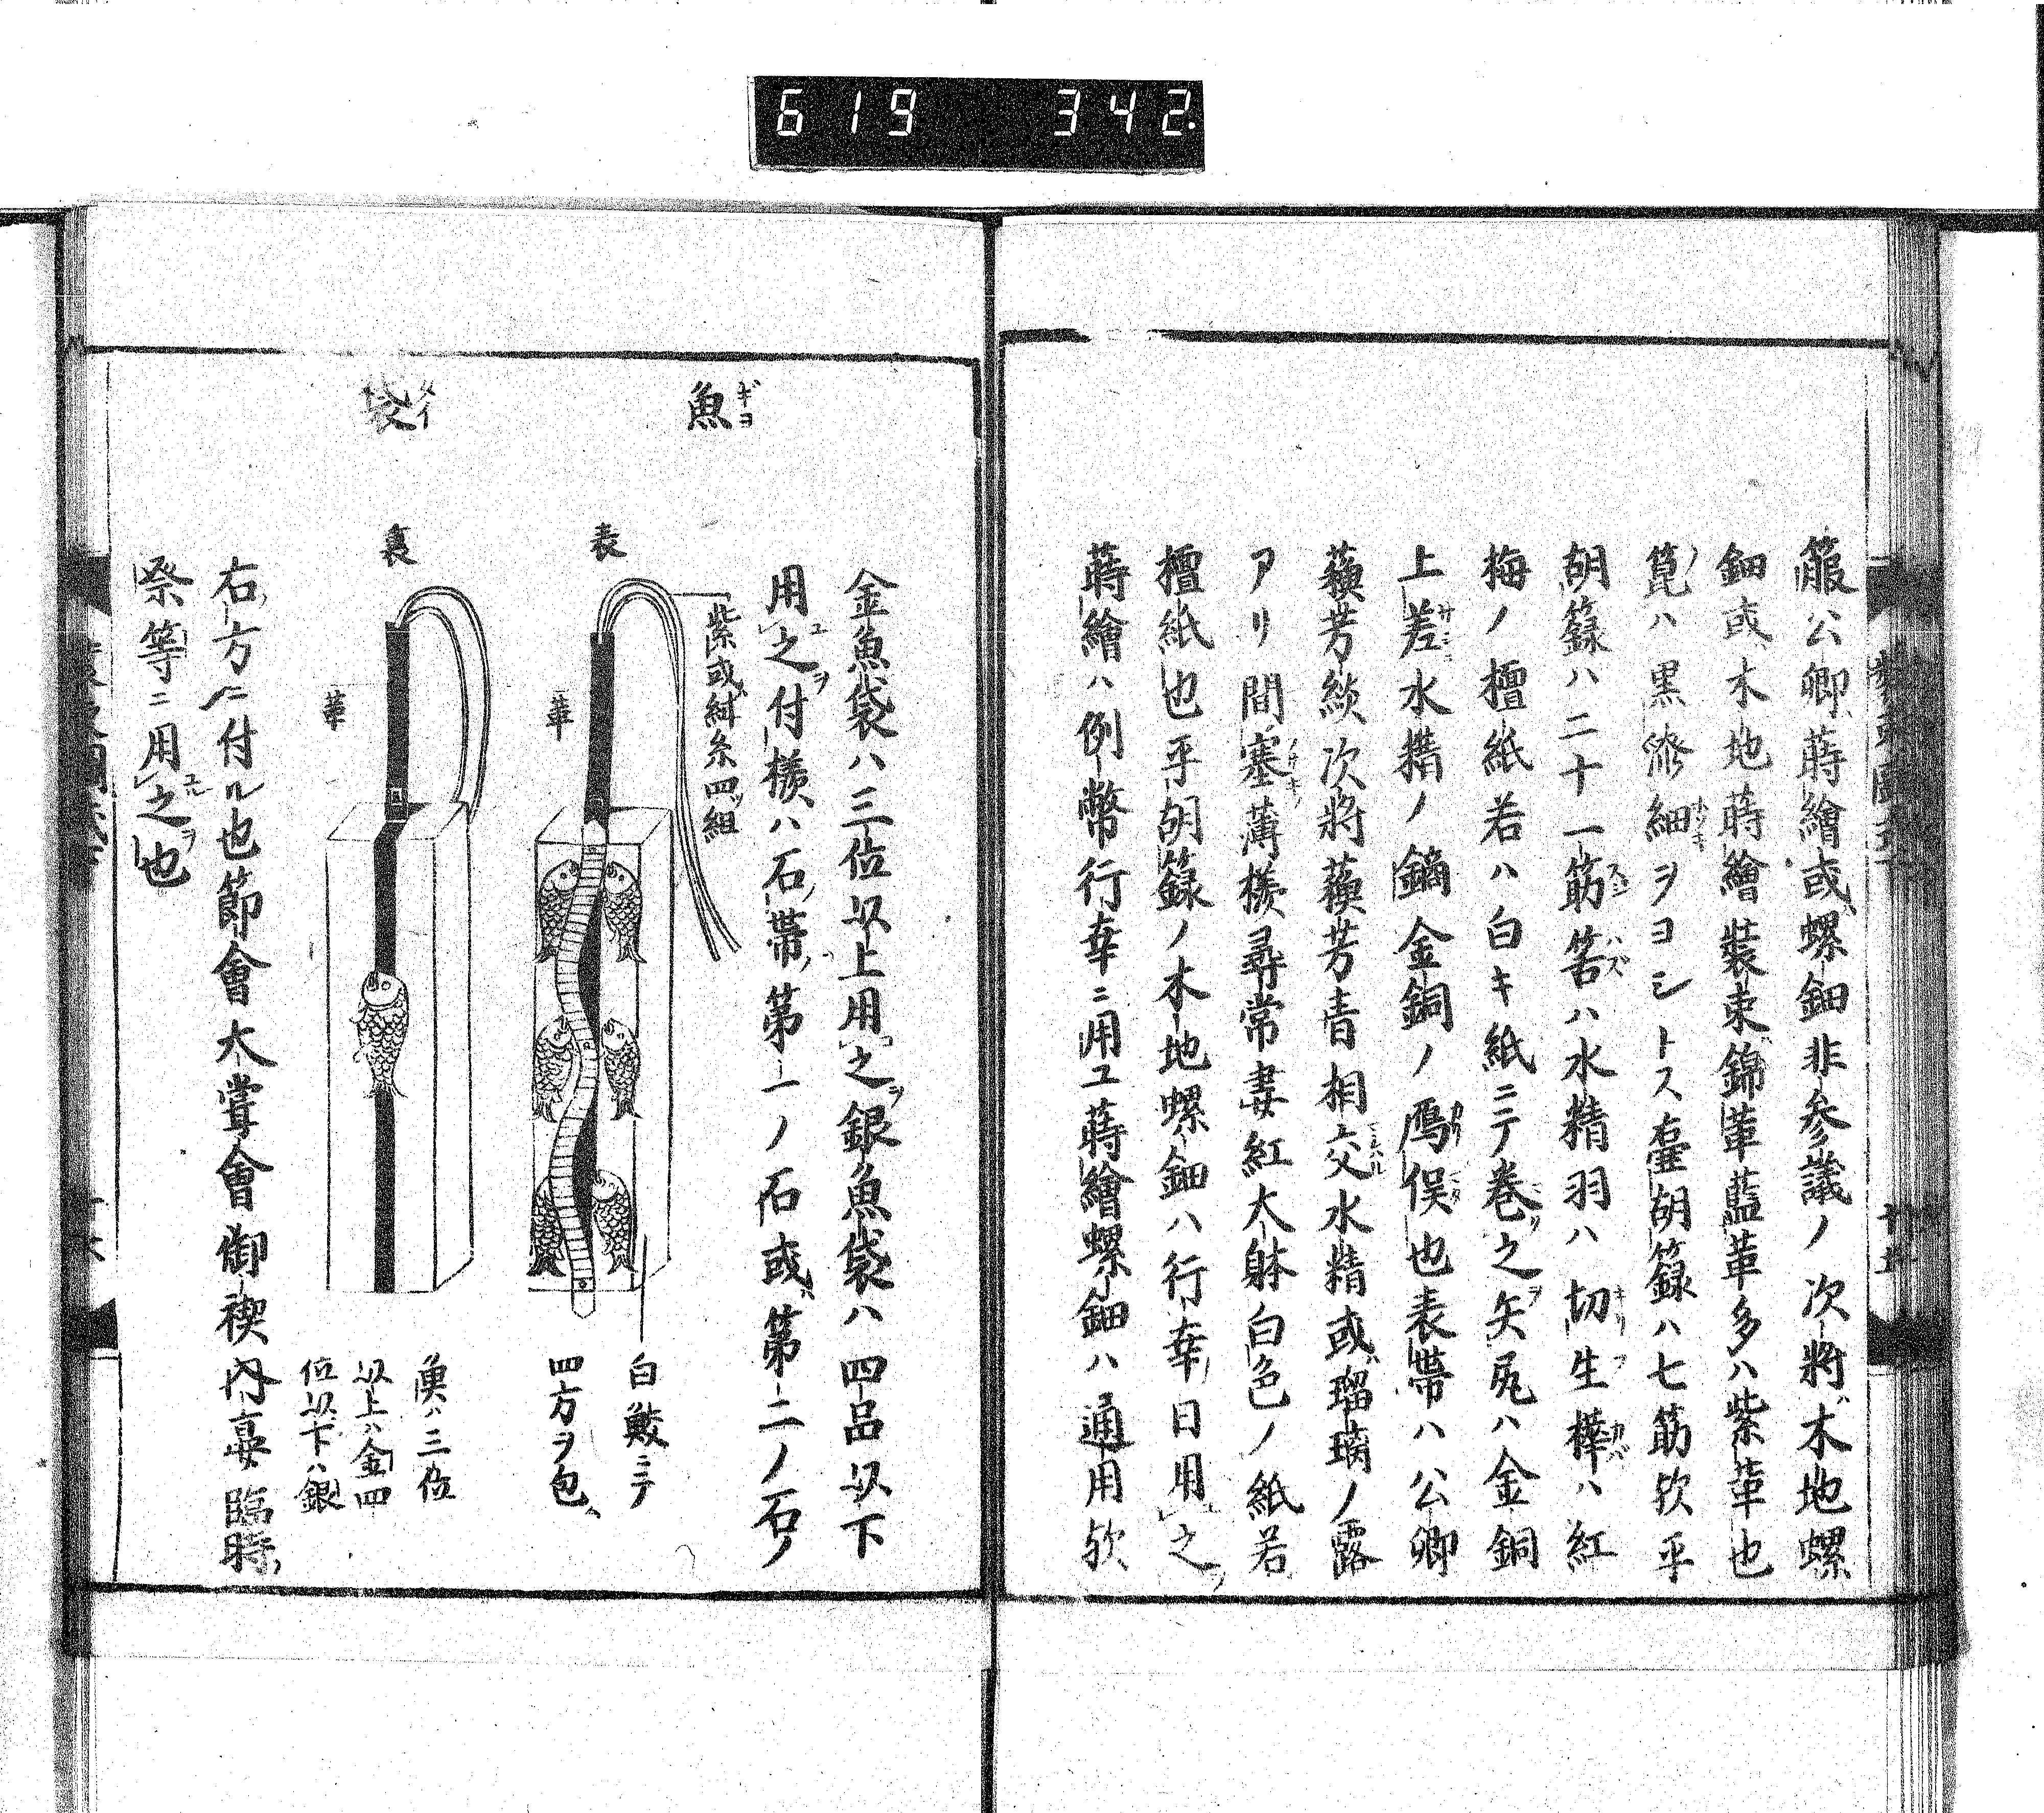 619 342.
箙公卿蒔繪或螺鈿非参議ノ次將ハ木地螺
鈿或木地蒔繪裝束錦革藍革多ハ紫革也
箟ハ黒漆細ヲヨシトス壷胡籙ハ七筋欤平
胡籙ハ二十一筋筈ハ水精羽ハ切生樺ハ紅
梅ノ檀紙若ハ白キ紙ニテ巻之矢尻ハ金銅
上差水精ノ鏑金銅ノ鴈俣也表帶ハ公卿
蘓芳緂次將蘓芳青相交水精或瑠璃ノ露
アリ間塞薄樣尋常妻紅大躰白色ノ紙若
檀紙也平胡籙ノ木地螺鈿ハ行幸日用之
蒔繪ハ例幣行幸ニ用ユ蒔繪螺鈿ハ通用欤
十五
魚 ギヨ
袋 タイ
金魚袋ハ三位以上用之銀魚袋ハ四品以下
用之付樣ハ石帶第一ノ石或第二ノ石ノ
紫或紺糸四組
表
革
白鮫ニテ
四方ヲ包
裏
革
魚ハ三位
以上ハ金四
位以下ハ銀
右方ニ付ル也節會大甞會御禊内宴臨時
祭等ニ用之也